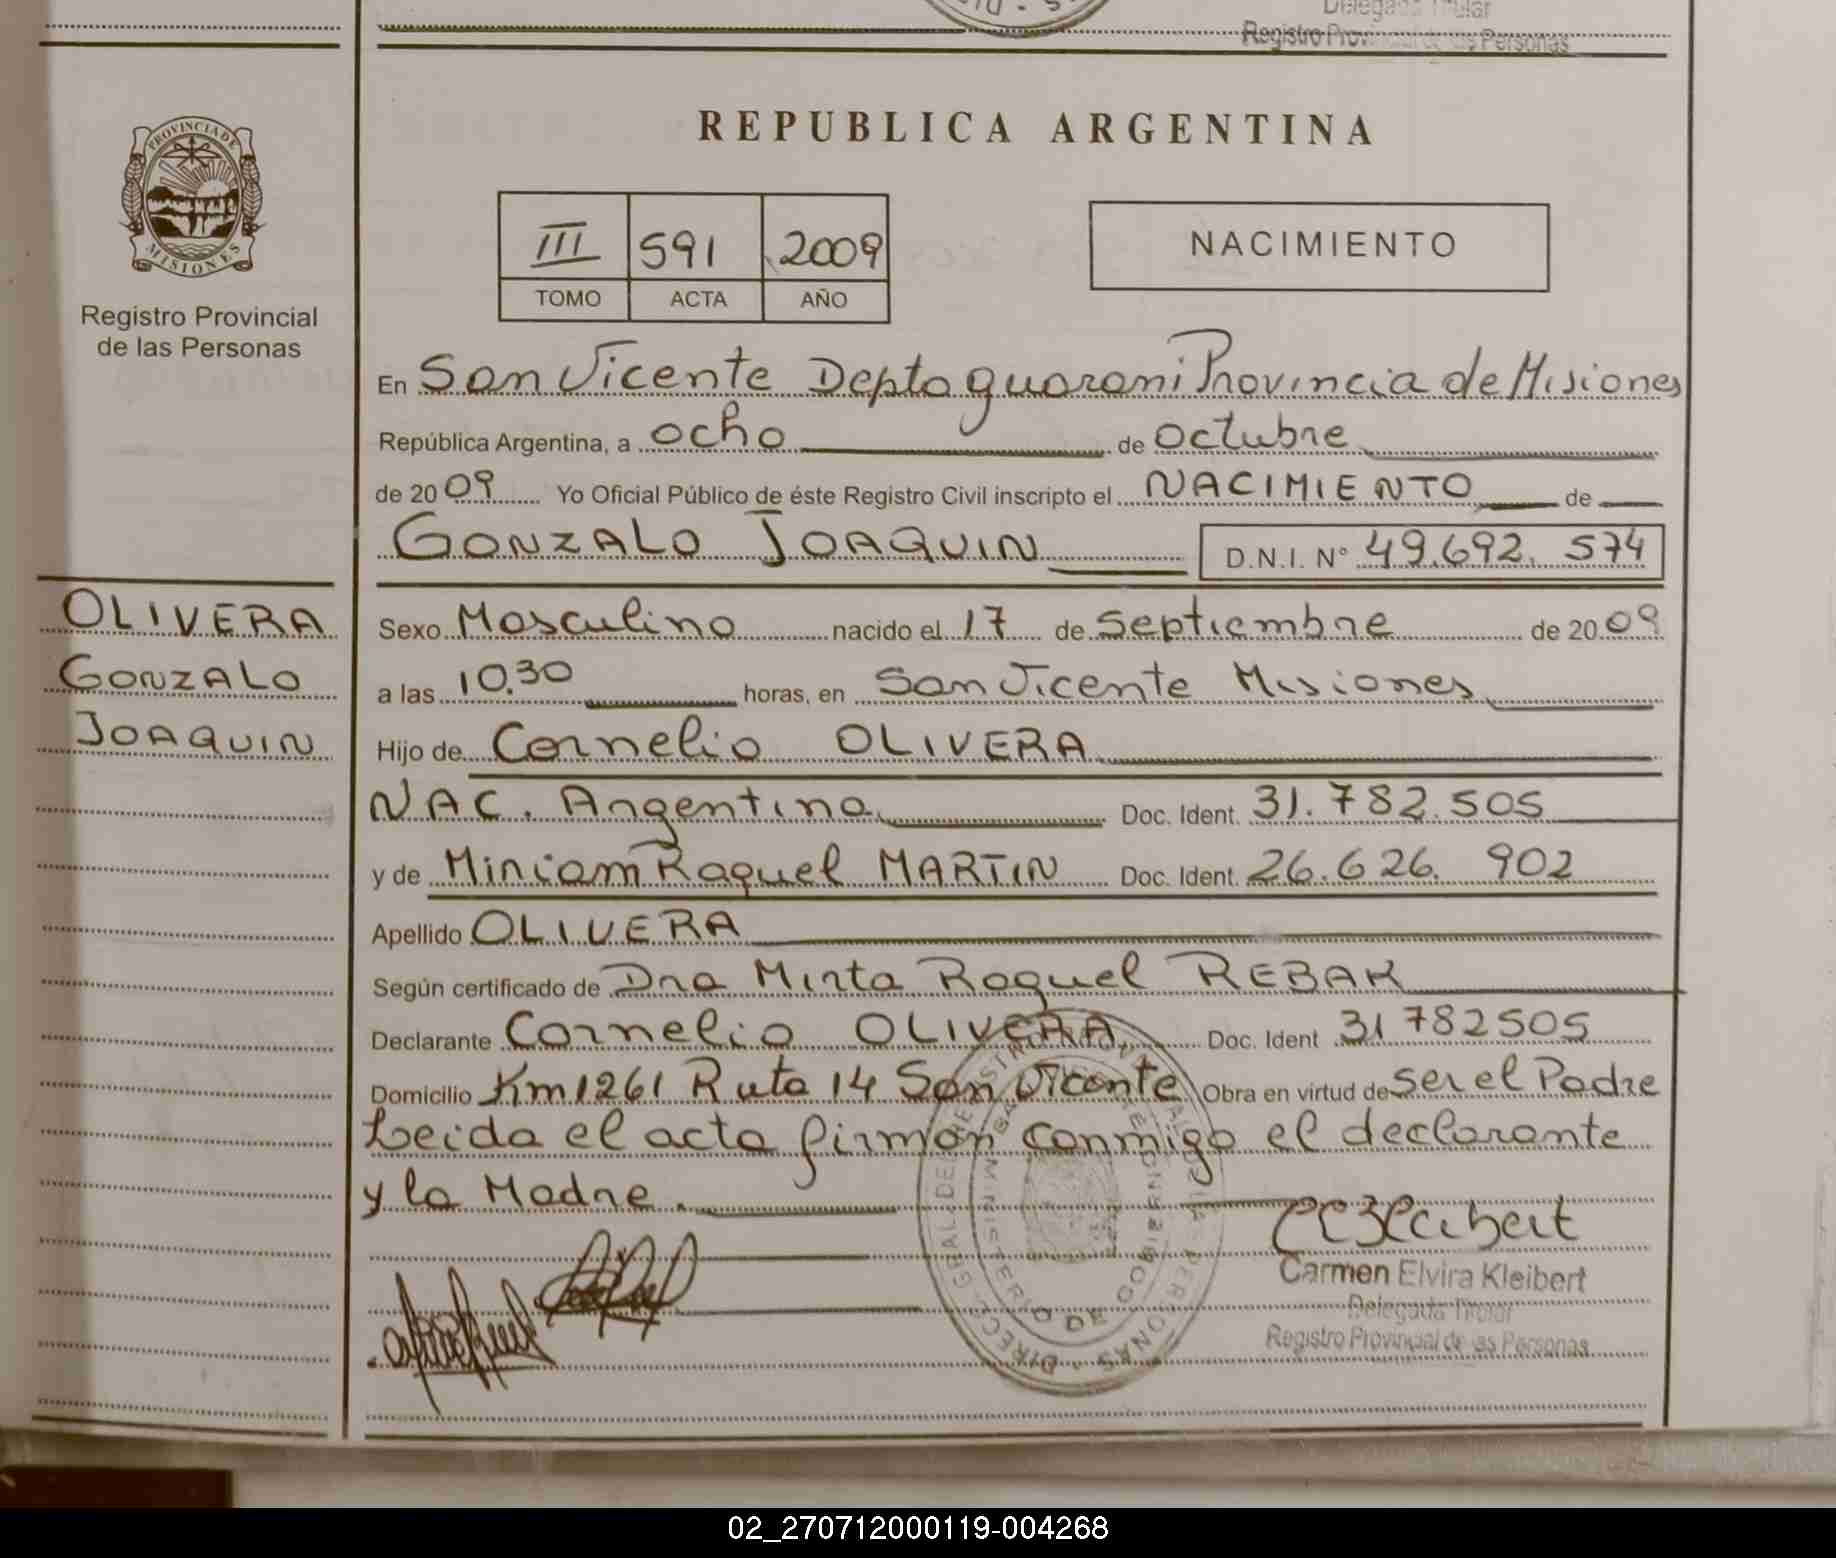 Delegada Titular
Registro Provincial de las Personas
PROVINCIA DE
MISIONES
Registro Provincial
de las Personas
REPUBLICA ARGENTINA
III 591 2009
TOMO ACTA AÑO
NACIMIENTO
En San Vicente Depto guarani Provincia de Misiones
República Argentina, a ocho de octubre
de 2009 Yo Oficial Público de éste Registro Civil inscripto el NACIMIENTO de
GONZALO JOAQUIN D.N.I. Nº 49.692.574
OLIVERA
GONZALO
JOAQUIN
Sexo Masculino nacido el 17 de Septiembre de 2009
a las 10.30 horas, en San Vicente Misiones
Hijo de Cornelio OLIVERA
NAC. Argentina Doc. Ident. 31.782.505
y de Miriam Raquel MARTIN Doc. Ident. 26.626.902
Apellido OLIVERA
Según certificado de Dra Mirta Raquel REBAK
Declarante Cornelio OLIVERA Doc. Ident 31782505
Domicilio Km1261 Ruta 14 San Vicente Obra en virtud de Ser el Padre
Leida el acta firman conmigo el declarante
y la Madre.
Carmen Elvira Kleibert
Delegada Titular
Registro Provincial de las Personas
02_270712000119-004268